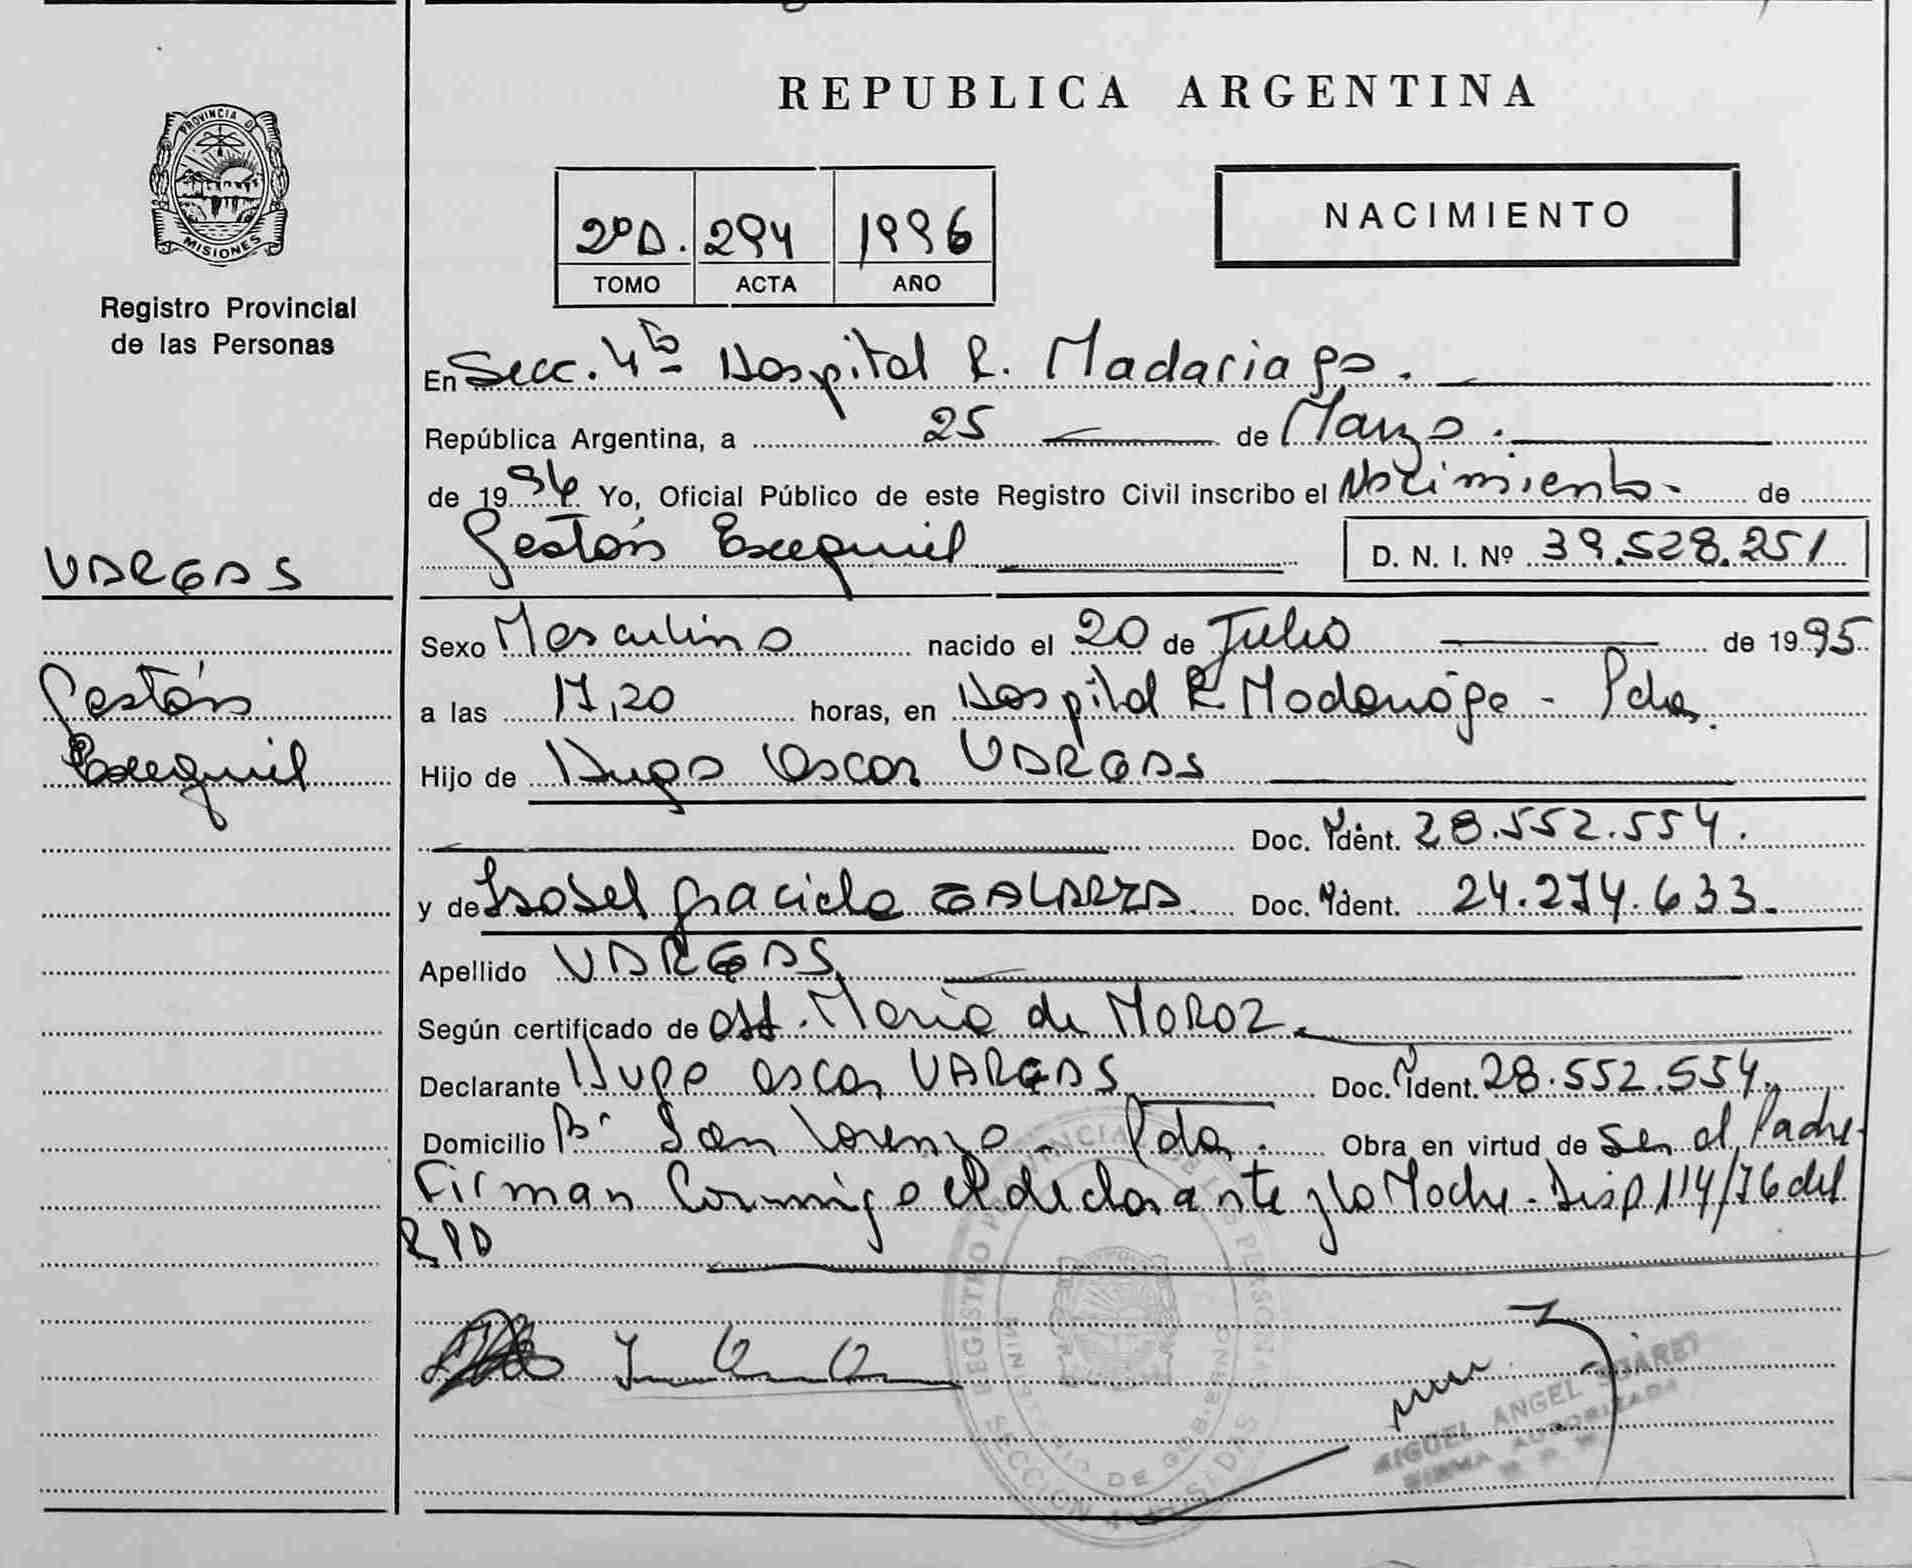 PROVINCIA DE
MISIONES
Registro Provincial
de las Personas
VARGAS
Gastón
Exequiel
REPUBLICA ARGENTINA
2ºD. 294 1996
TOMO ACTA AÑO
NACIMIENTO
En Secc. 4ta Hospital R. Madariaga.
República Argentina, a 25 de Marzo.
de 1996 Yo, Oficial Público de este Registro Civil inscribo el Nacimiento de
Gastón Exequiel D. N. I. Nº 39.528.251
Sexo Masculino nacido el 20 de Julio de 1995
a las 17,20 horas, en Hospital R Madariaga - Pdas.
Hijo de Hugo Oscar VARGAS
Doc. Ident. 28.552.554.
y de Isabel Graciela GALARZA. Doc. Ident. 24.274.633.
Apellido VARGAS
Según certificado de Obst. María de MOROZ.
Declarante Hugo Oscar VARGAS Doc. Ident. 28.552.554.
Domicilio Bº San Lorenzo - Pdas. Obra en virtud de Ser el Padre-
Firman Conmigo el declarante y la Madre - Disp. 114/76 del
RPP
MIGUEL ANGEL SUAREZ
FIRMA AUTORIZADA